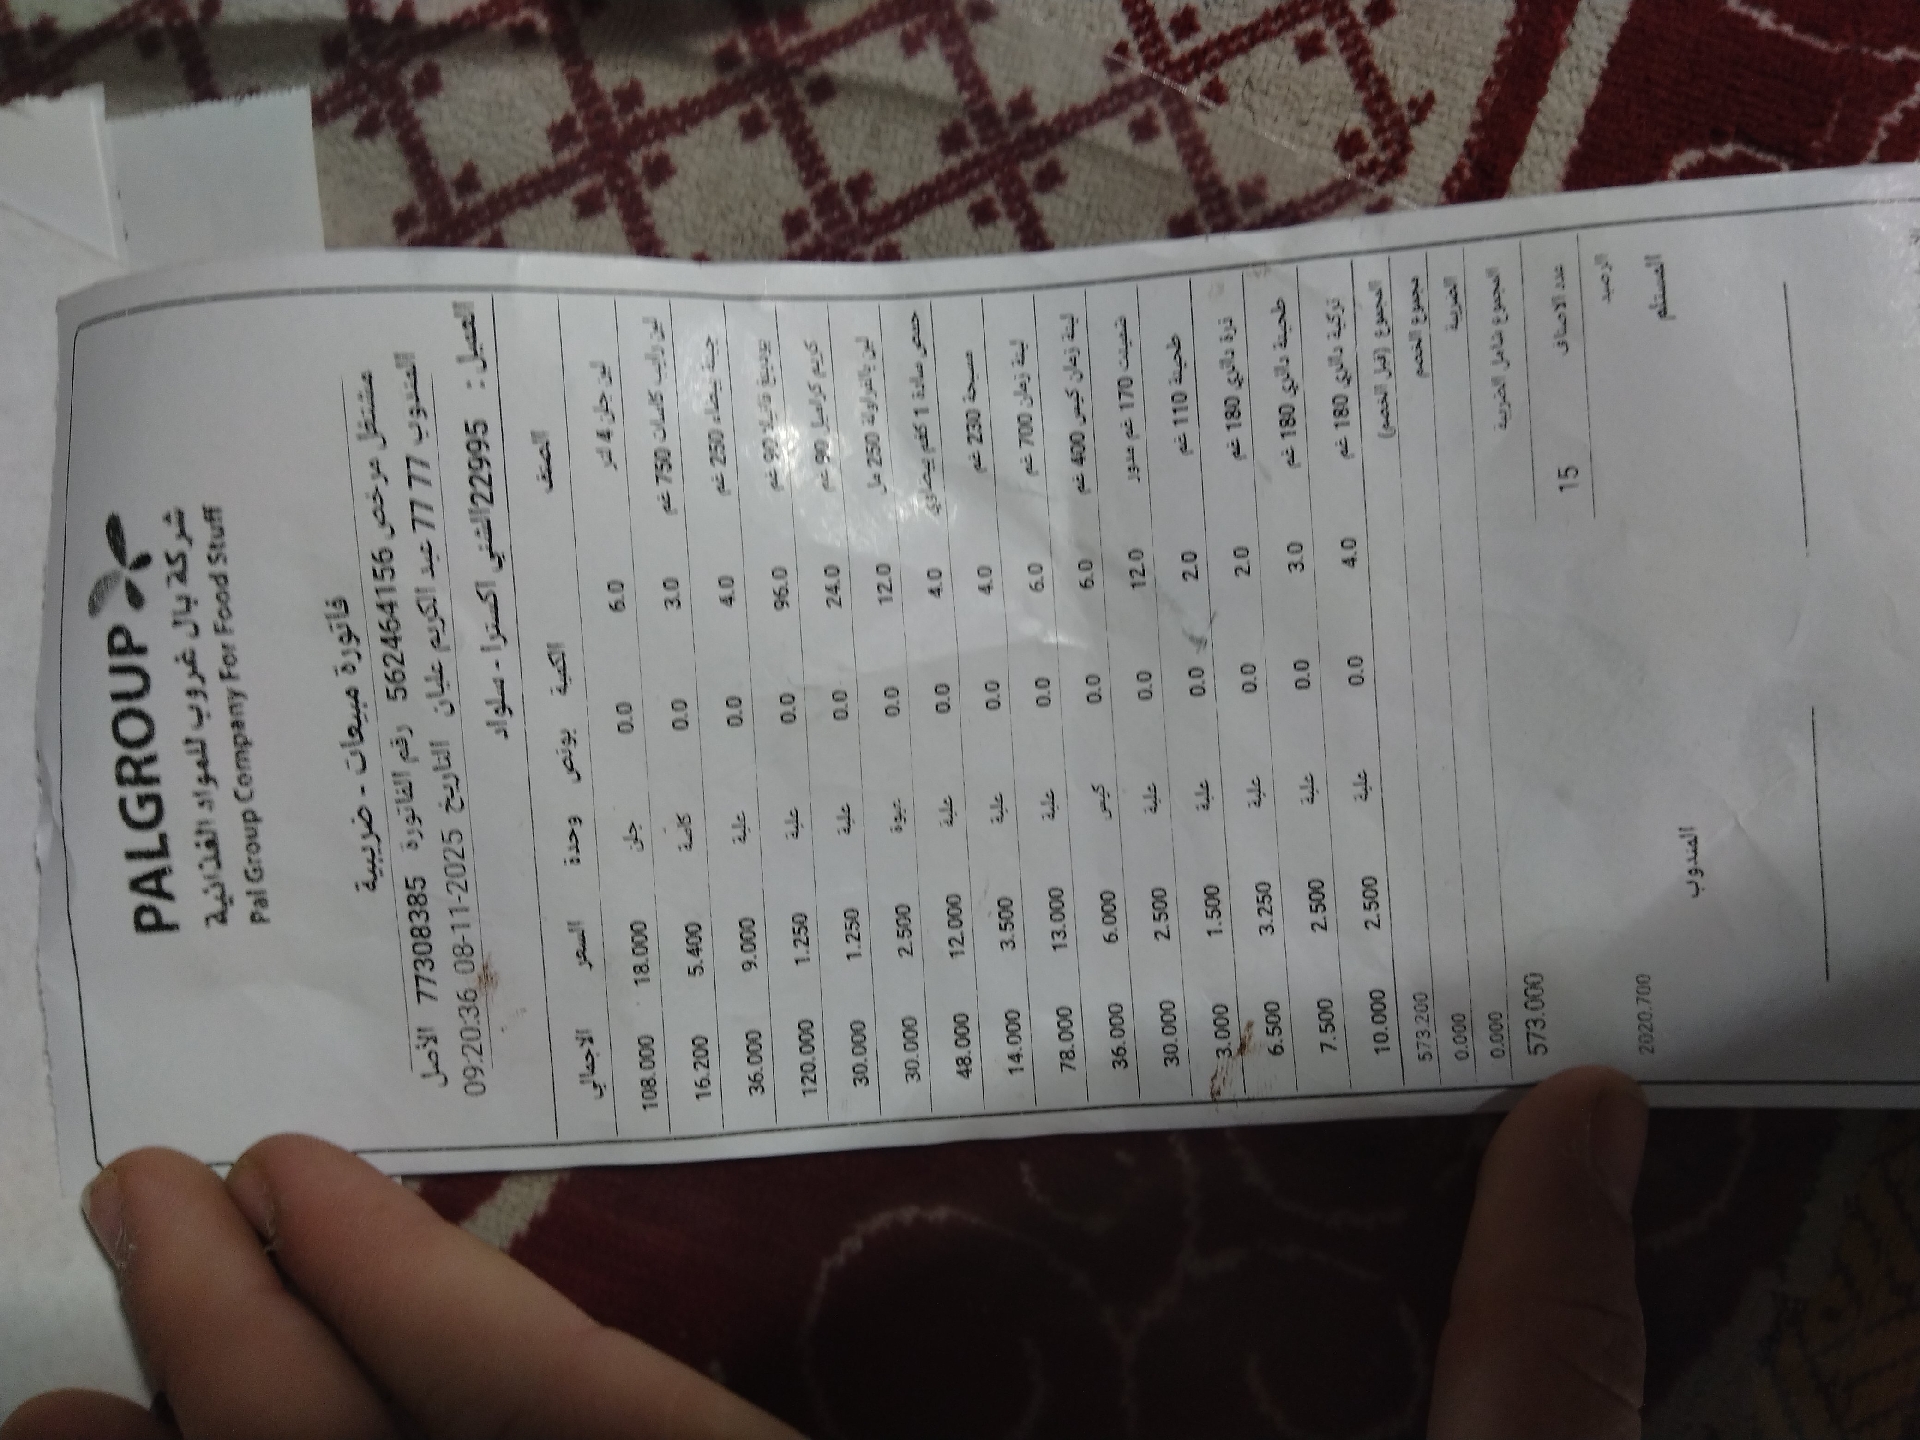 PALGROUP
شركة بال غروب للمواد الغذائية
Pal Group Company For Food Stuff
فاتورة مبيعات - ضريبية
مشتغل مرخص 562464156 رقم الفاتورة 77308385 الأصل
المندوب 77 77 عبد الكريم عليان التاريخ 2025-11-08 09:20:36
العميل : 22995/الشني اكسترا - سلواد
الصنف الكمية بونص وحدة السعر الاجمالي
لبن جل 4 لتر 6.0 0.0 جلن 18.000 108.000
لبن رايب كاسات 750 غم 3.0 0.0 كاسة 5.400 16.200
جبنة بيضاء 250 غم 4.0 0.0 علبة 9.000 36.000
بودينغ فانيلا 90 غم 96.0 0.0 علبة 1.250 120.000
كريم كراميل 90 غم 24.0 0.0 علبة 1.250 30.000
لبن بالفراولة 250 مل 12.0 0.0 عبوة 2.500 30.000
حمص سادة 1 كغم بيضاوي 4.0 0.0 علبة 12.000 48.000
مسبحة 230 غم 4.0 0.0 علبة 3.500 14.000
لبنة زمان 700 غم 6.0 0.0 علبة 13.000 78.000
لبنة زمان كيس 400 غم 6.0 0.0 كيس 6.000 36.000
170 غم مدور 12.0 0.0 علبة 2.500 30.000
طحينة 110 غم 2.0 0.0 علبة 1.500 3.000
ذرة دائري 180 غم 2.0 0.0 علبة 3.250 6.500
طحينة دائري 180 غم 3.0 0.0 علبة 2.500 7.500
تركية دائري 180 غم 4.0 0.0 علبة 2.500 10.000
المجموع (قبل الخصم) 573.200
مجموع الخصم 0.000
الضريبة 0.000
المجموع شامل الضريبة 573.000
عدد الاصناف 15
الرصيد 2020.700
المستلم المندوب